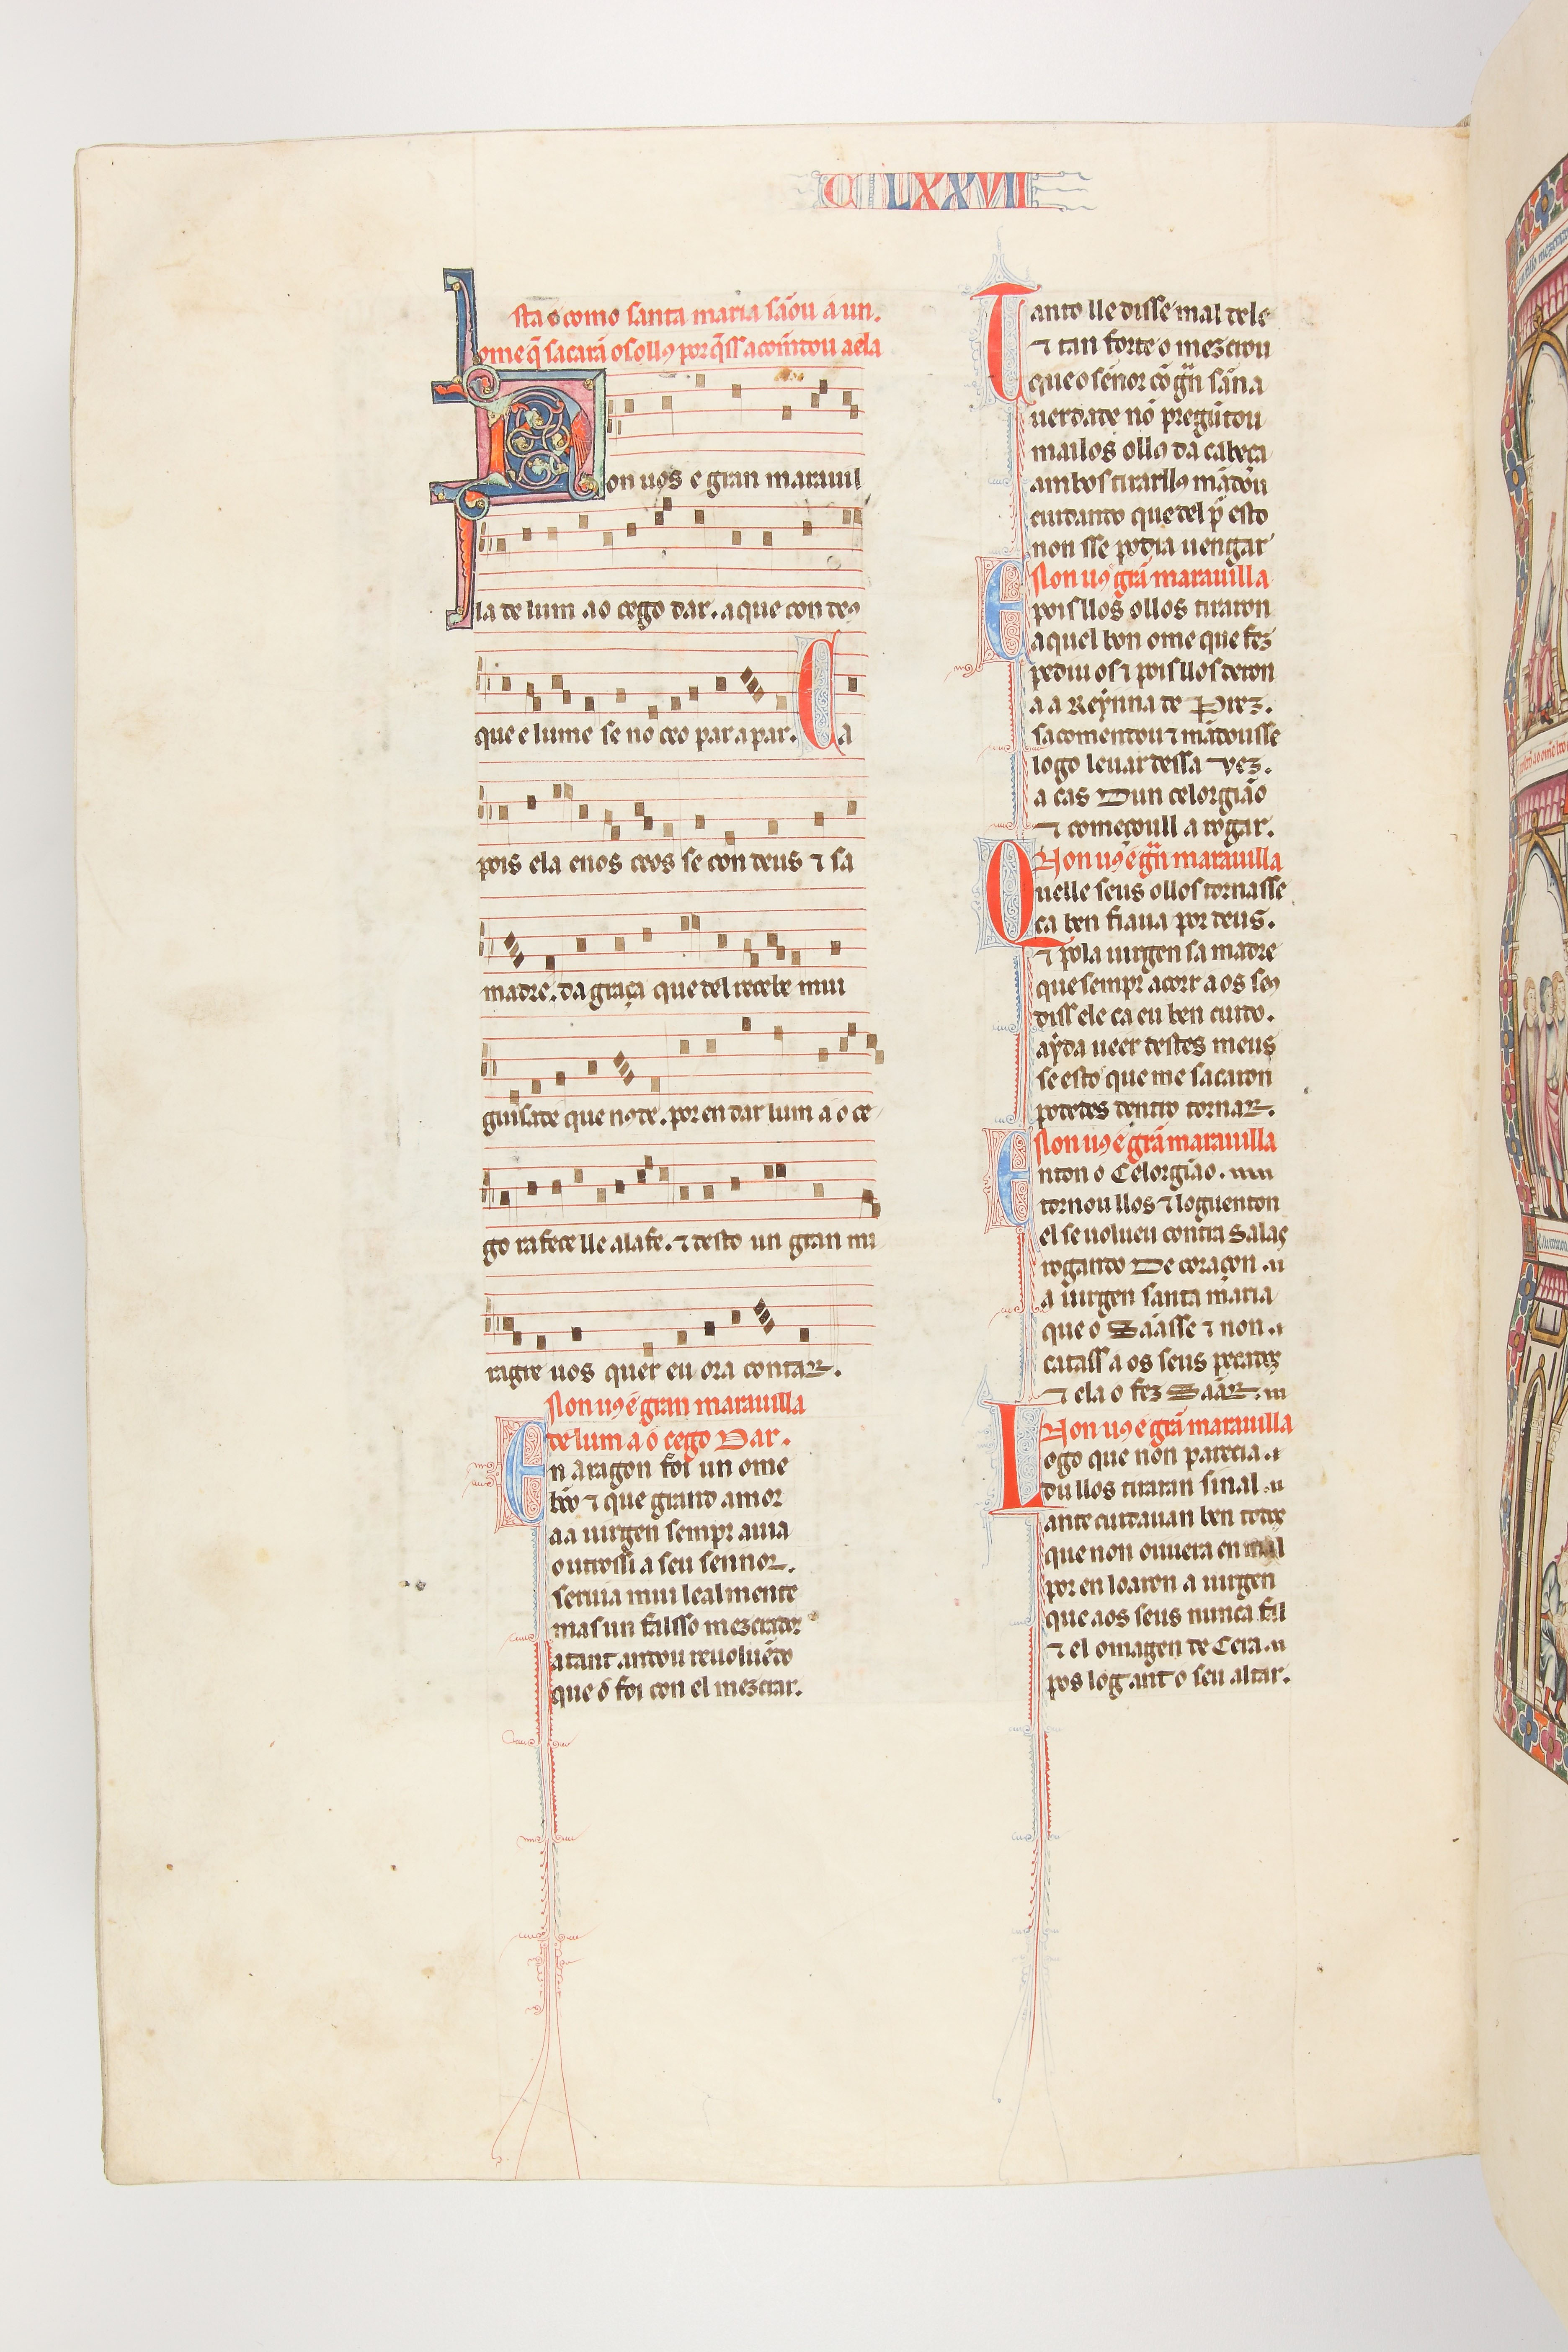 C LXXVII
sta é como santa maria sãou a un.
ome q̃ sacarã os ollꝰ por q̃ss acomẽtou a ela
Non uos e gran marauil
la de lum ao cego dar. a que con deꝰ
que e lume se no ceo par a par. Ca
pois ela enos ceos se con deus ⁊ sa
madre. da graça que del recebe mui
guisade que nꝰ de. por en dar lum a o ce
go rafece lle alafe. ⁊ desto un gran mi
ragre uos quer eu ora contar.
Non uꝰ é gran marauilla
de lum a o cego Dar.
En aragon foi un ome
bõo ⁊ que grand amor
aa uirgen sempr auia
outrossi a seu sennor.
seruia mui lealmente
mas un falsso mezcrador
atant andou reuoluẽdo
que o foi con el mezcrar.
Tanto lle disse mal dele
⁊ tan forte o mezcrou
que o señor cõ grã saña
uerdade nõ pregũtou
mailos ollꝰ da cabeça
ambos tirarllꝰ mãdou
cuidando que del p̃ esto
non sse podia uengar
Non uꝰ grã marauilla
E poisllos ollos tiraron
aquel bon ome que fez
pediu os ⁊ poisllos deron
a a Reynna de Prez.
sacomendou ⁊ mãdousse
logo leuar dessa vez.
a cas Dun celorgião
⁊ começoull a rogar.
Non uꝰ é grã marauilla
Quelle seus ollos tornasse
ca ben fiaua por deus.
⁊ pola uirgen sa madre
que sempr acorr a os seꝰ
diss ele ca eu ben cuido.
aỹda ueer destes meus
se esto que me sacaron
podedes dentro tornar.
Non uꝰ é grã marauilla
Enton o Celorgião.
tornou llos ⁊ log enton
el se uolueu contra Salaș
rogando De coraçon
a uirgen santa maria
que o Sãasse ⁊ non
catass a os seus pecados
⁊ ela o fez Sãar.
Non uꝰ e grã marauilla
Logo que non parecia
du llos tiraran sinal
ante cuidauan ben todos
que non ouuera en mal
por en loaron a uirgen
que aos seus nunca fal
⁊ el omagen de Cera
pos log ant o seu altar.